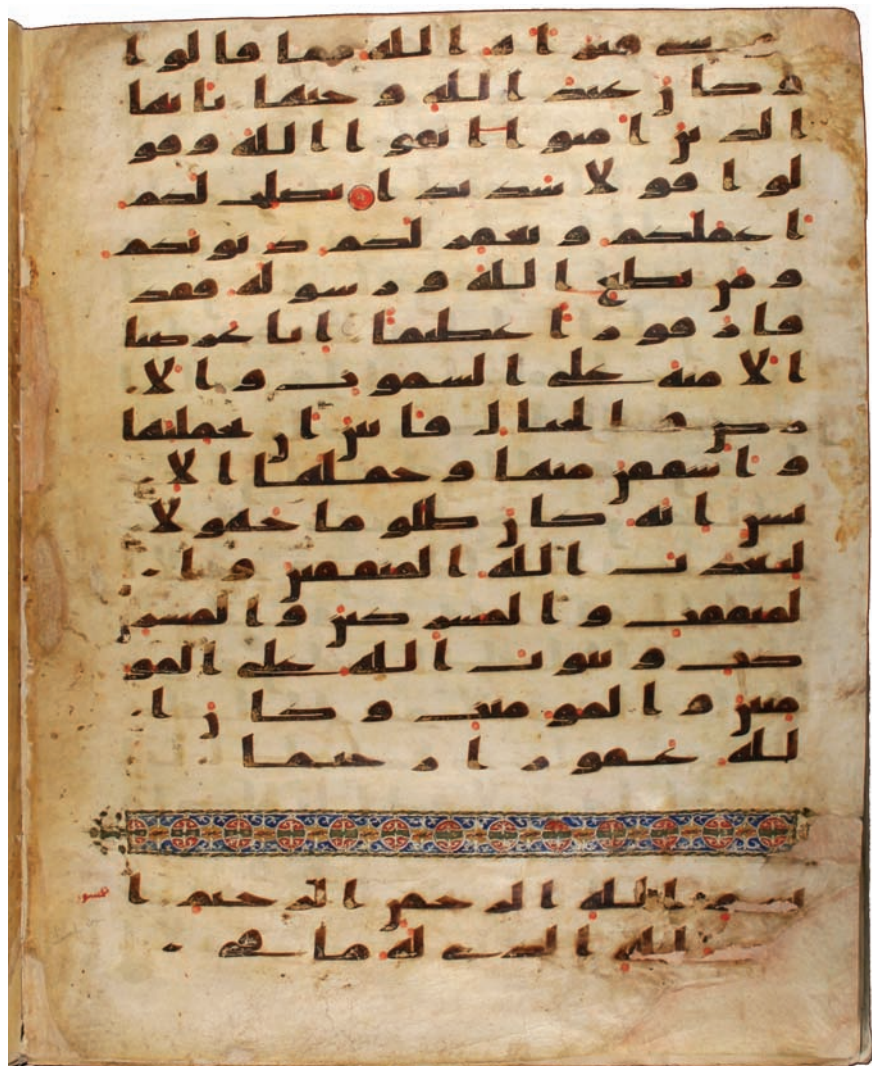 موسى فبراه الله مما قالوا
وكان عند الله وجيها يايها
الذين امنوا اتقوا الله وقو
لوا قولا سديدا يصلح لكم
اعملكم ويغفر لكم ذنوبكم
ومن يطع الله ورسوله فقد
فاز فوزا عظيما انا عرضنا
الامنة على السموت والا
رض والجبال فابين ان يحملنها
واشفقن منها وحملها الا
نسن انه كان ظلوما جهولا
ليعذب الله المنفقين وا
لمنفقت والمشركين والمشر
كت ويتوب الله على المو
منين والمومنت وكان ا
لله غفورا رحيما
بسم الله الرحمن الرحيم ا
لله الذي له ما في